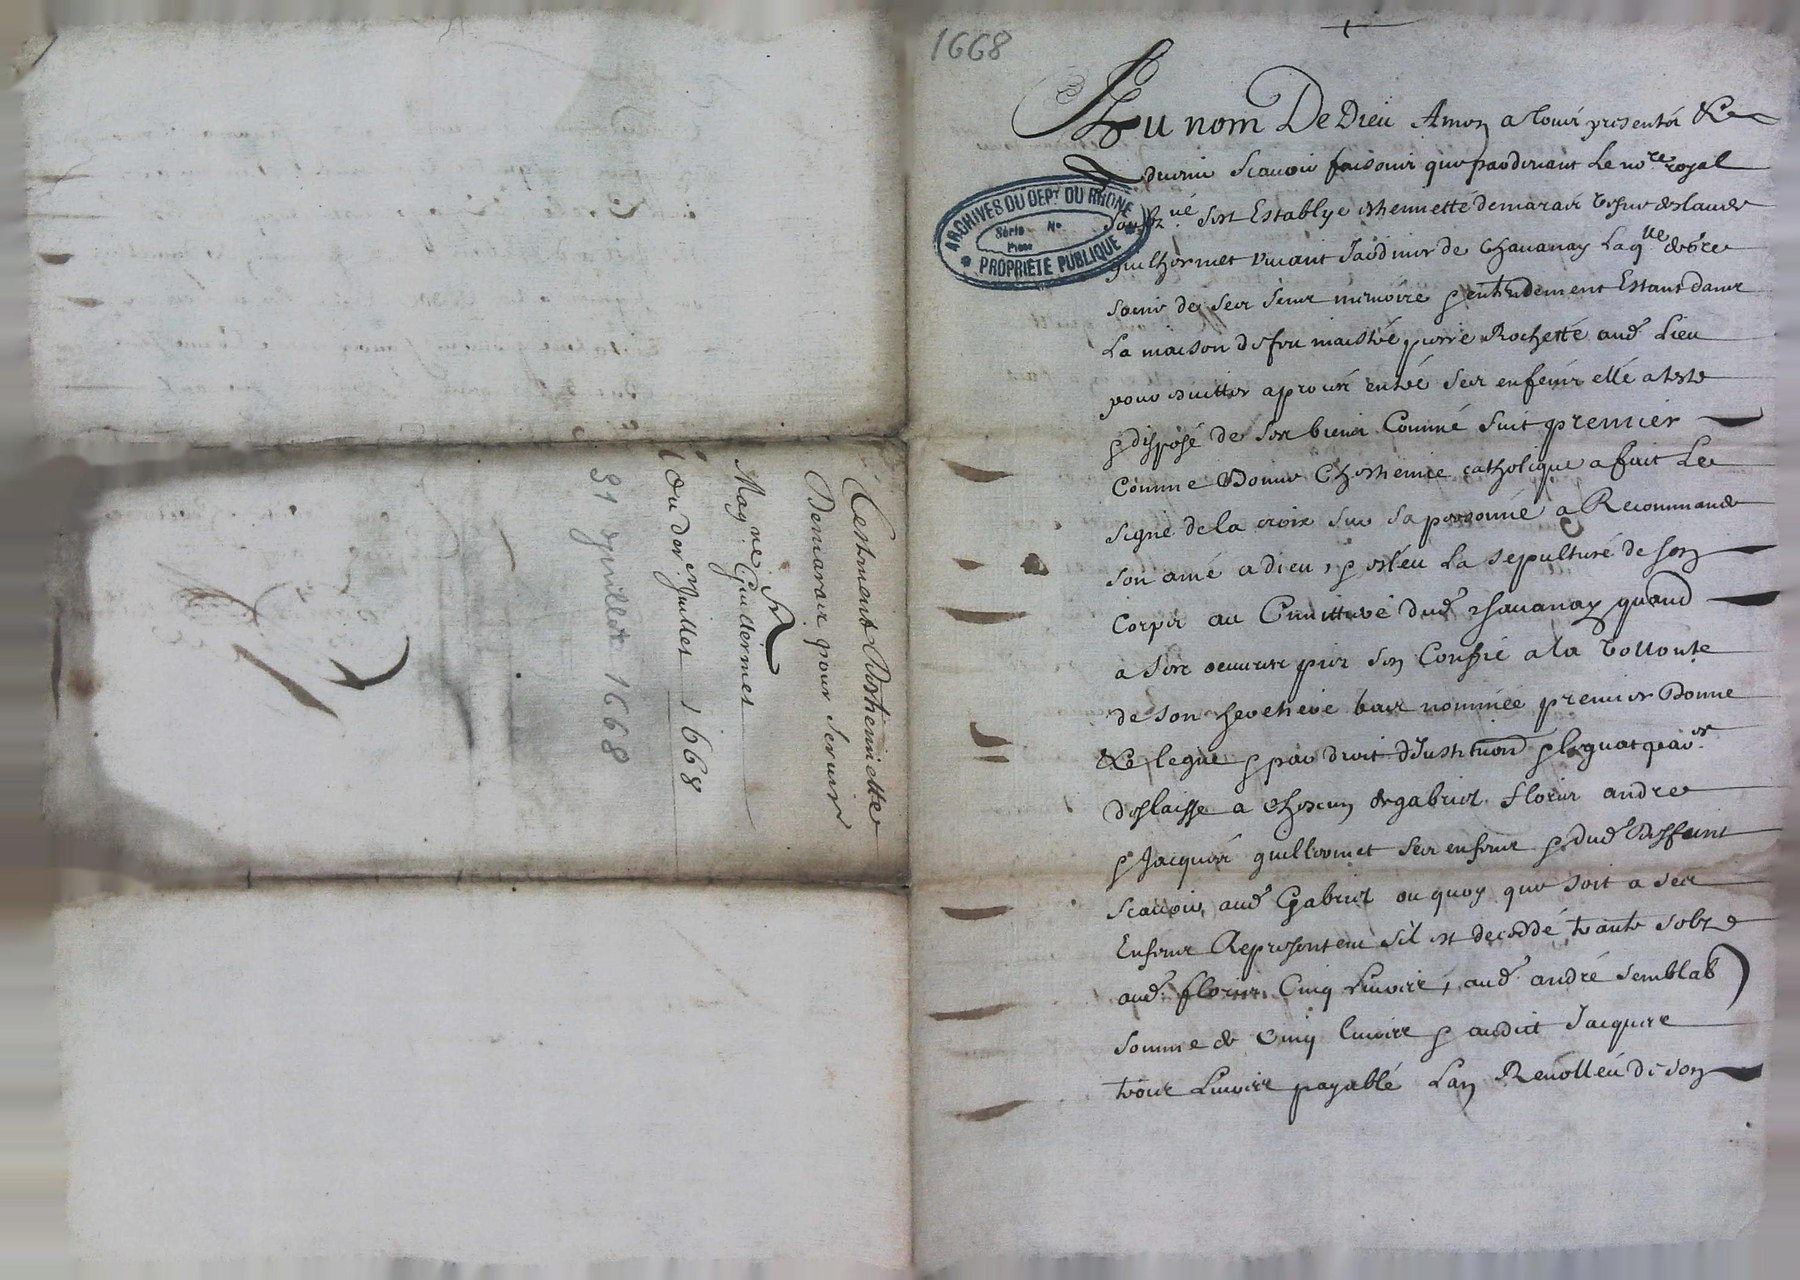 1668
Au nom De Dieu Amen a tous presents &
advenir scavoir faisons que pardevant Le no.re royal
soubz.né s'est Establye estiennette demarais vefve de claude
guilhermet vivant Jardinier de Chavanay Laq.lle de gre
saine de ses sens memoire & entendement Estant dans
La maison de feu maistre pierre Rochette aud. Lieu
pour esvitter a proces entre ses enfens elle a teste
& disposé de ses biens Comme suit premier
Comme Bonne Chrestienne catholique a fait Le
signe de la croix sur sa personne a Recommandé
son ame a dieu, & esleu La sepulture de son
Corps au Cimittiere dud. Chavanay quand
a ses oeuvres pies s'en Confie a la vollonte
de son heretiere bas nommée premier Donne
& legue & par droit d'Institution & leguat par.er
delaisse a chascun de gabriel fleurie andre
& Jacques guillermet ses enfens & dud. Deffunt
scavoir aud. Gabriel ou quoy que soit a ses
Enfens Representens s'il est decedde trante solz &
aud. fleurie Cinq Livres, aud. andré semblab
somme de Cinq livres & audict Jacques
trois Livres payable L'an Revolleu de son
Testment d'Estiennette
Demarais pour servir
Mayne Guillermet
Du der.er Juillet 1668
31 Juillet 1668
ARCHIVES DU DÉP.T DU RHÔNE
Série No
Pièce
PROPRIÉTÉ PUBLIQUE